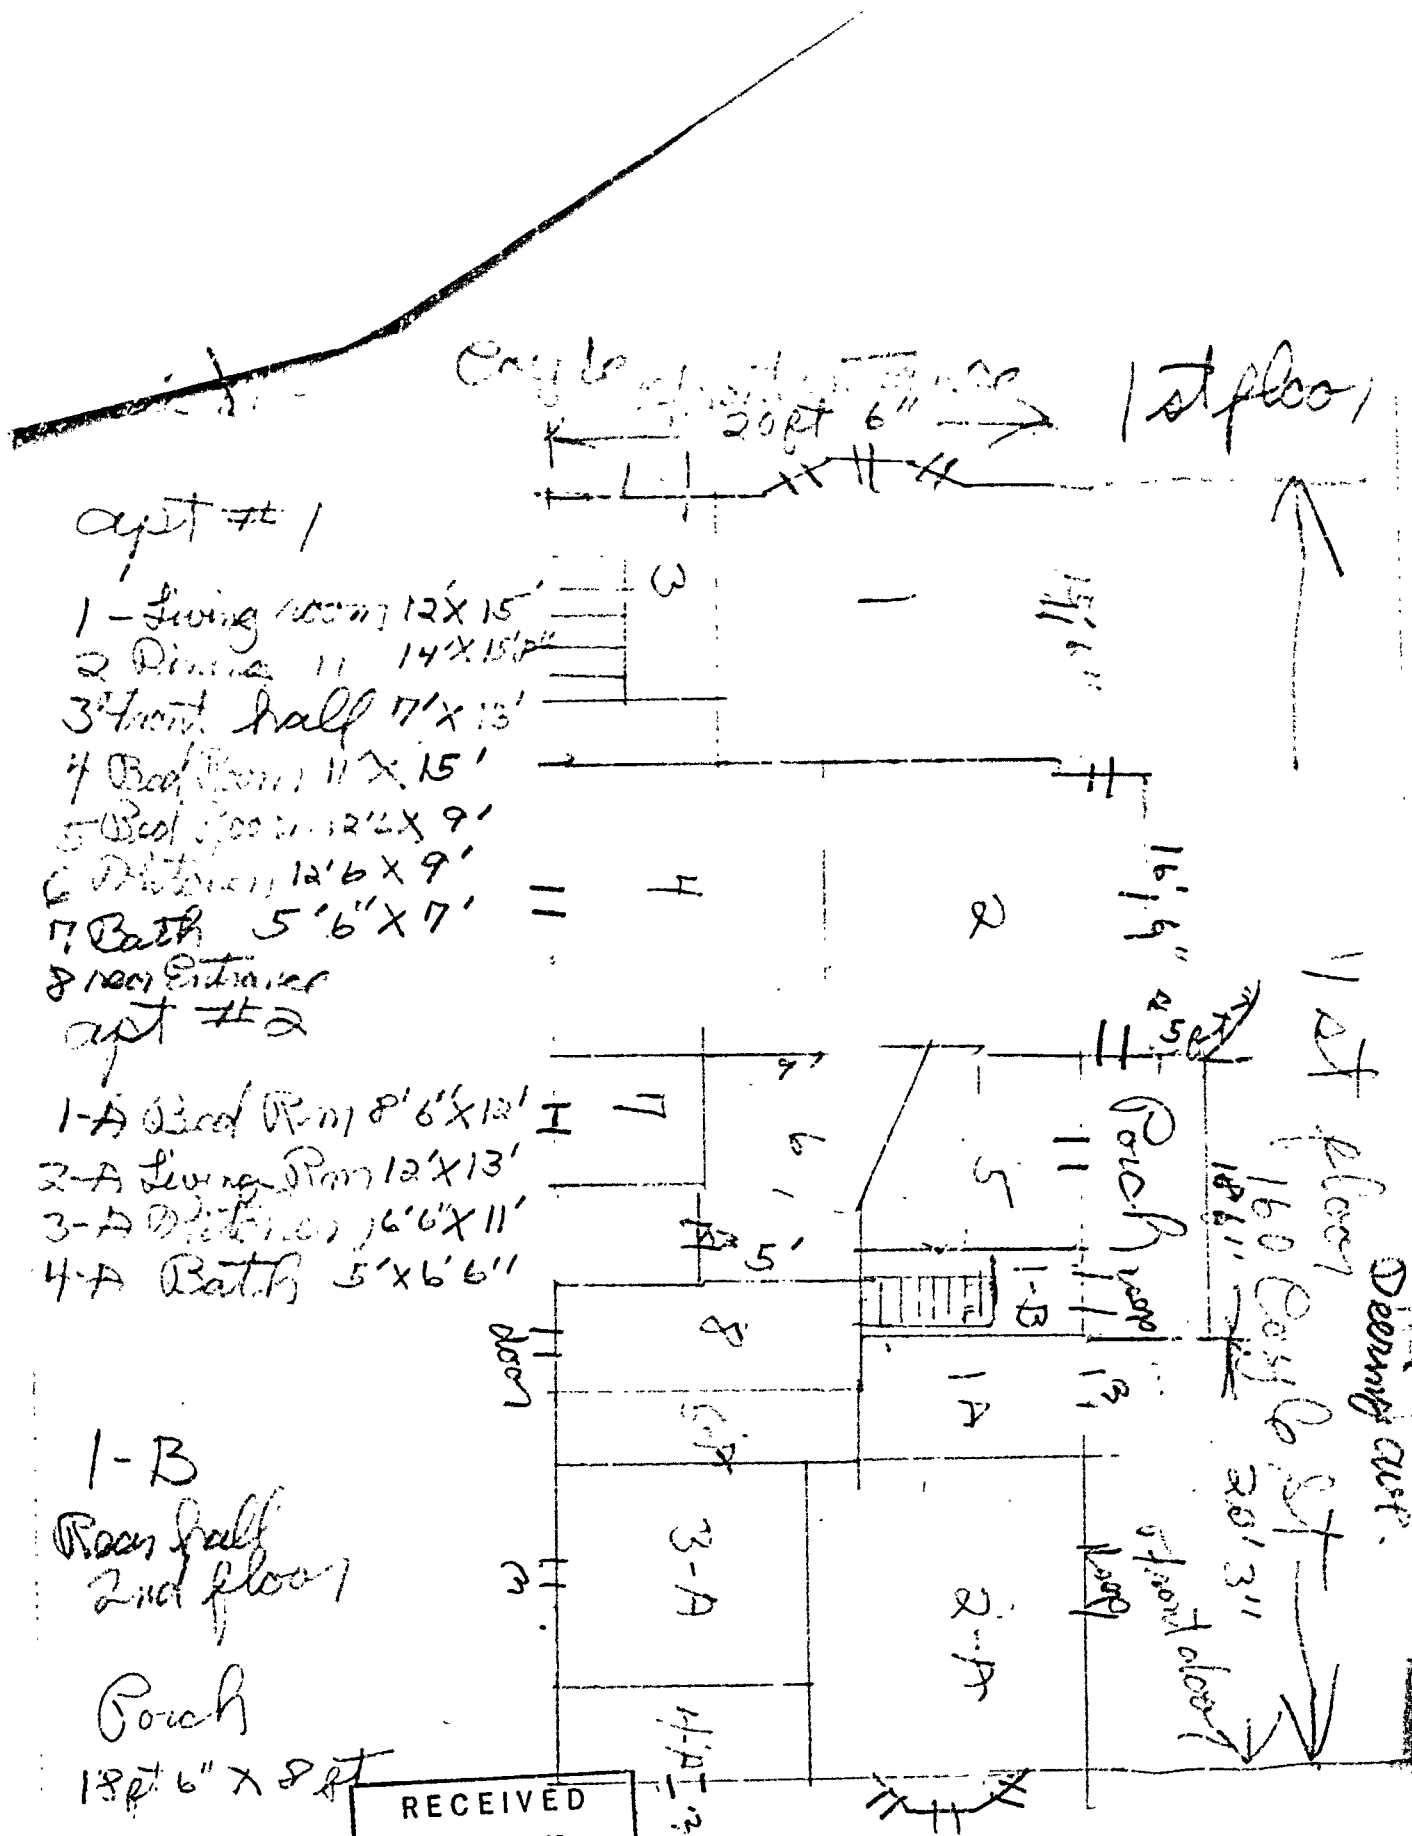 1st floor
20ft 6"
apt # 1
1 - Living room 12' X 15'
2 Dining 11 14' X 15'
3 Front hall 7' X 13'
4 Bed Room 11' X 15'
5 Bed Room X 9'
6 Kitchen 12'6 X 9'
7 Bath 5'6" X 7'
8 rear Entrance
apt # 2
1-A Bed Rm 8'6" X 12'
2-A Living Rm 12' X 13'
3-A Kitchen 6'6" X 11'
4-A Bath 5' X 6'6"
1-B
Rear hall
2nd floor
Porch
18ft 6" X 8 ft
RECEIVED
3
1
15' 6"
4
2
16' 6"
7
9'
6
5
5'
Porch
18'6"
door
1-B
8
door
1A
5-A
3-A
2-A
4-A
door
front door
20' 3"
1st floor
160 Coyle St
Deering ave.